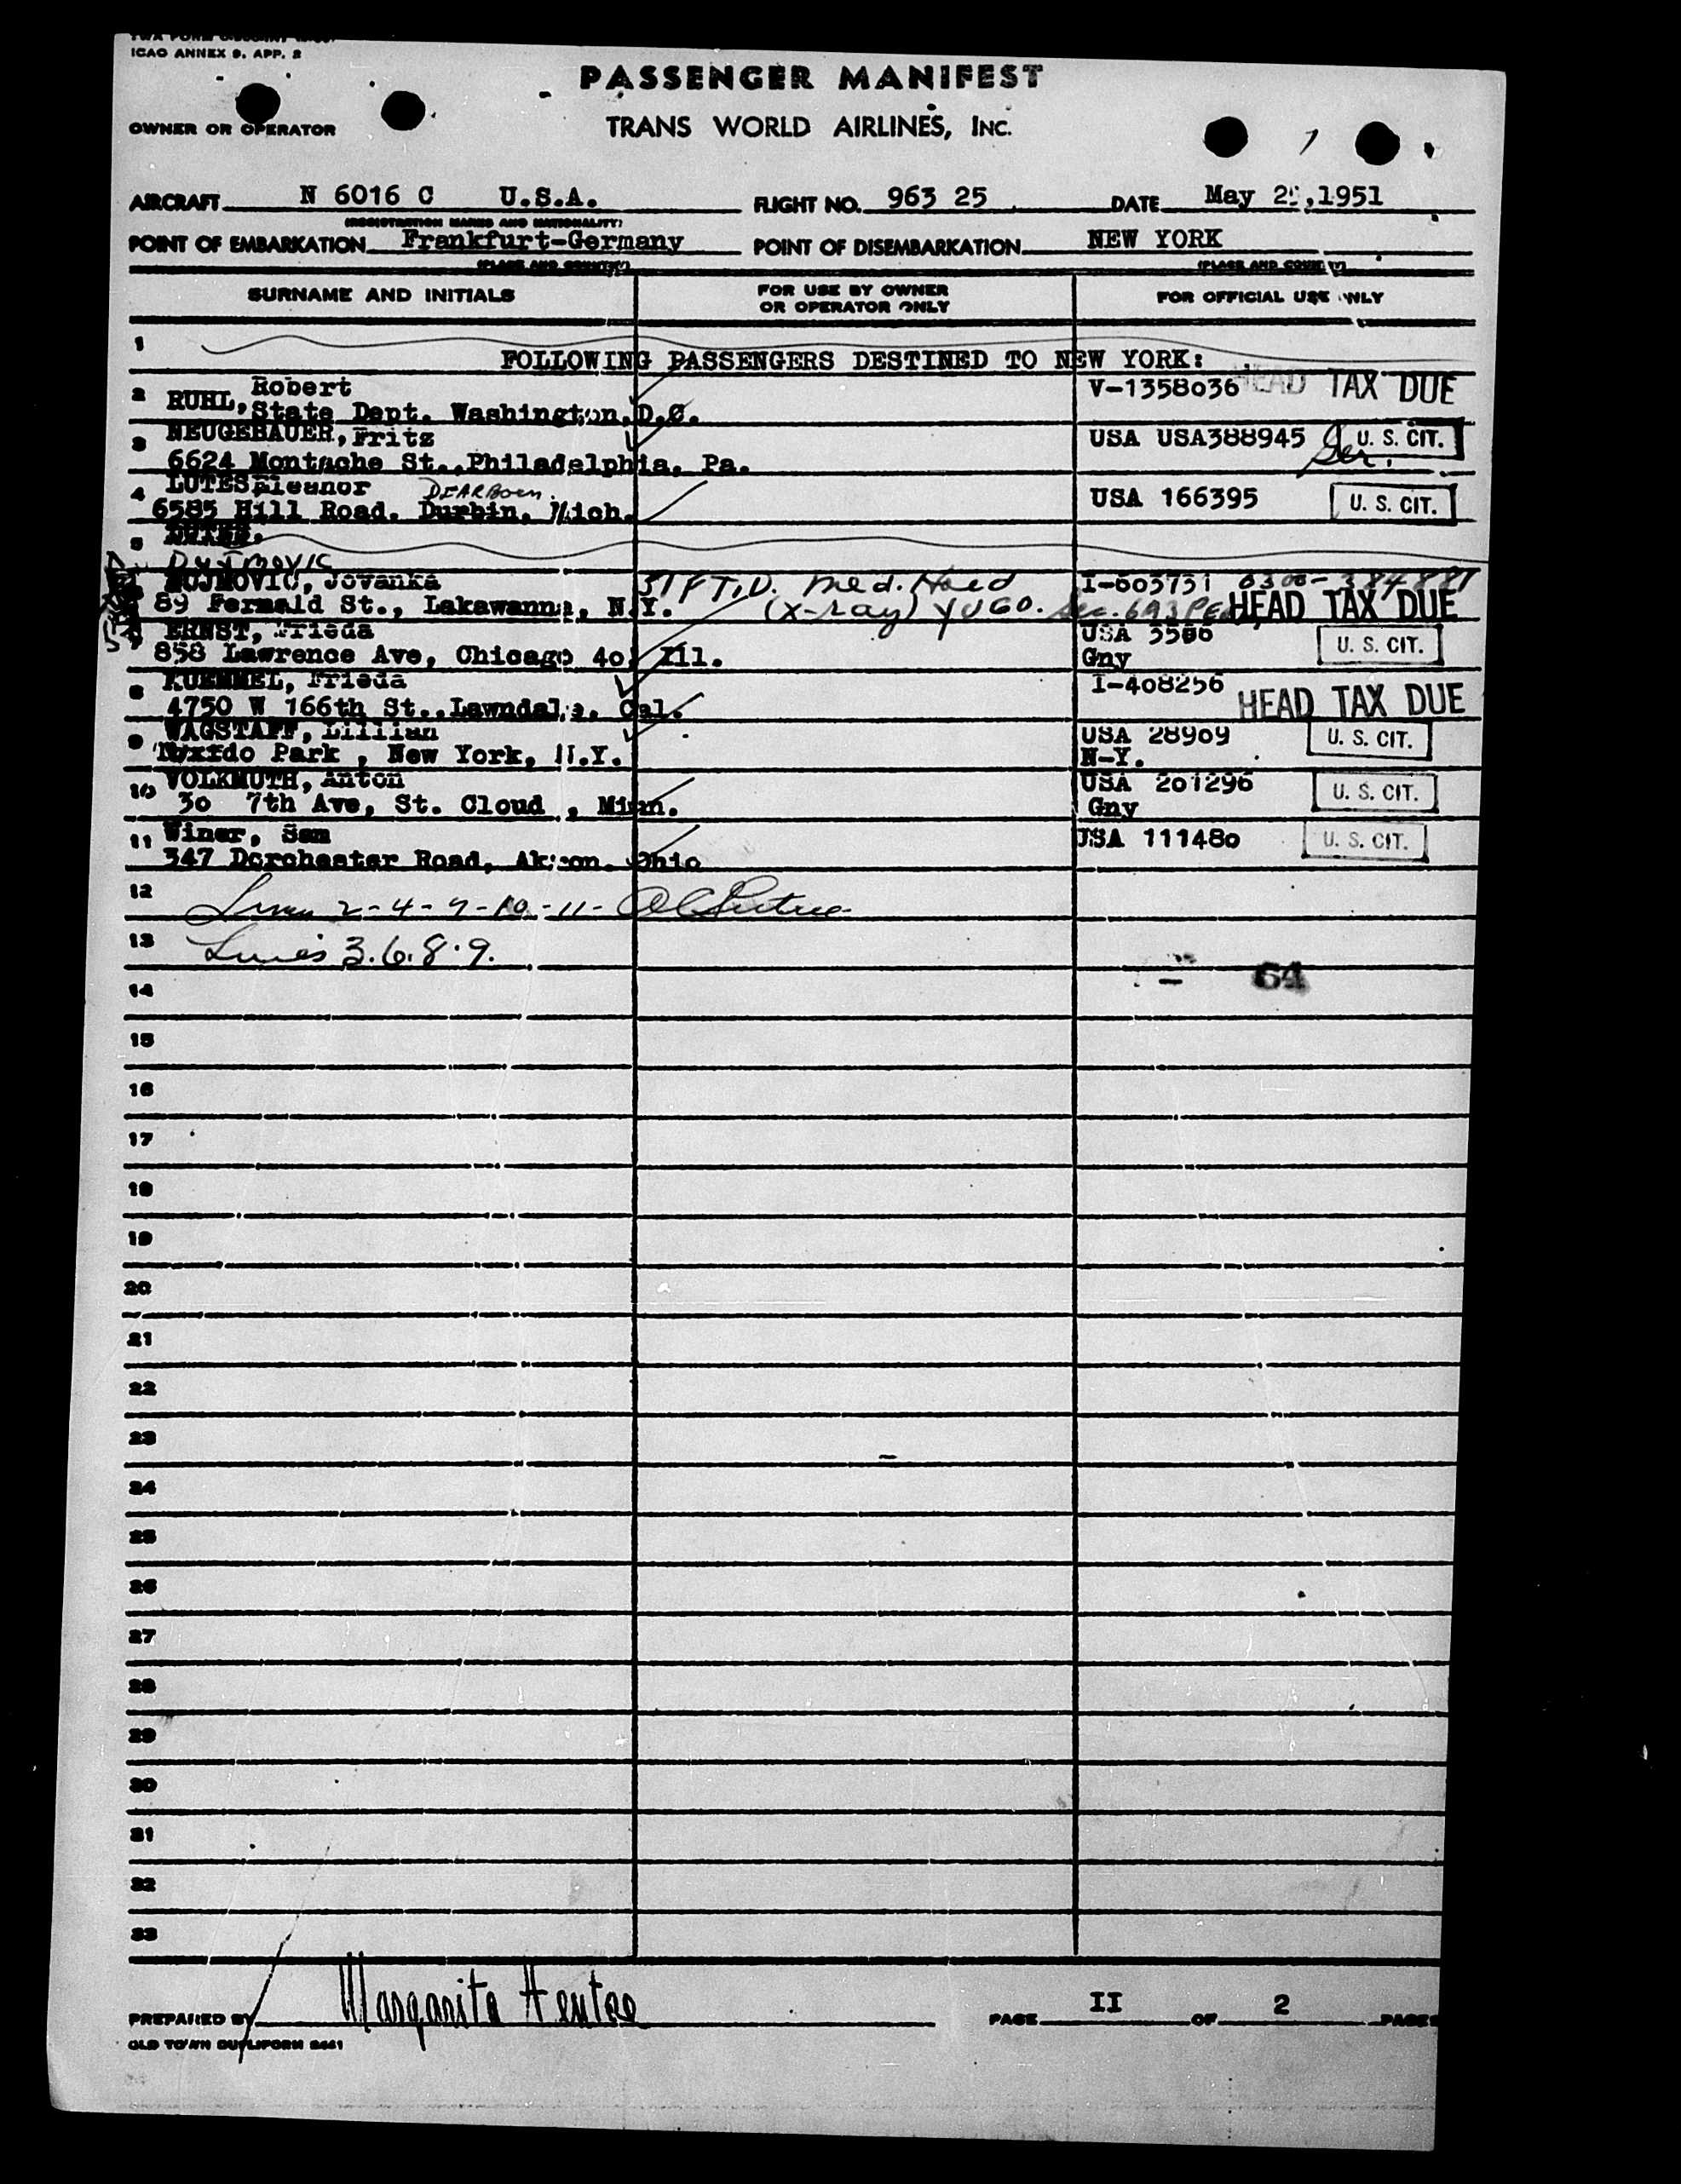 ICAO ANNEX 9. APP. 2
PASSENGER MANIFEST
OWNER OR OPERATOR
TRANS WORLD AIRLINES, INC.
AIRCRAFT N 6016 C U.S.A. FLIGHT NO. 963 25 DATE May ,1951
(REGISTRATION MARKS AND NATIONALITY)
POINT OF EMBARKATION Frankfurt-Germany POINT OF DISEMBARKATION NEW YORK
(PLACE AND COUNTRY) (PLACE AND COUNTRY)
SURNAME AND INITIALS FOR USE BY OWNER OR OPERATOR ONLY FOR OFFICIAL USE ONLY
1
FOLLOWING PASSENGERS DESTINED TO NEW YORK:
2 RUHL, Robert V-1358036 HEAD TAX DUE
State Dept. Washington, D.C.
3 NEUGEBAUER, Fritz USA USA388945 U. S. CIT.
6624 St., Philadelphia, Pa.
4 LUTES, Eleanor DEARBORN USA 166395 U. S. CIT.
6585 Hill Road, Durbin, Mich.
5
Jovanka Med. Hold I-603731
89 Fermald St., Lakawanna, N.Y. (X-ray) YUGO. HEAD TAX DUE
ERNST, Frieda USA 5506 U. S. CIT.
858 Lawrence Ave, Chicago 40, Ill. Gny
8 KUEMMEL, Frieda I-408256 HEAD TAX DUE
4750 W 166th St., Lawndale, Cal.
9 WAGSTAFF, Lillian USA 28909 U. S. CIT.
Tuxfdo Park , New York, N.Y. N-Y.
10 VOLKMUTH, Anton USA 201296 U. S. CIT.
30 7th Ave, St. Cloud , Minn. Gny
11 Winer, Sam USA 111480 U. S. CIT.
347 Dorchester Road, Akron, Ohio
12 2-4-7-10-11-
13 Lines 3.6.8.9.
64
14
15
16
17
18
19
20
21
22
23
24
25
26
27
28
29
30
31
32
33
PREPARED BY Margarita PAGE II OF 2 PAGES
OLD TOWN DUPLIFORM 2441